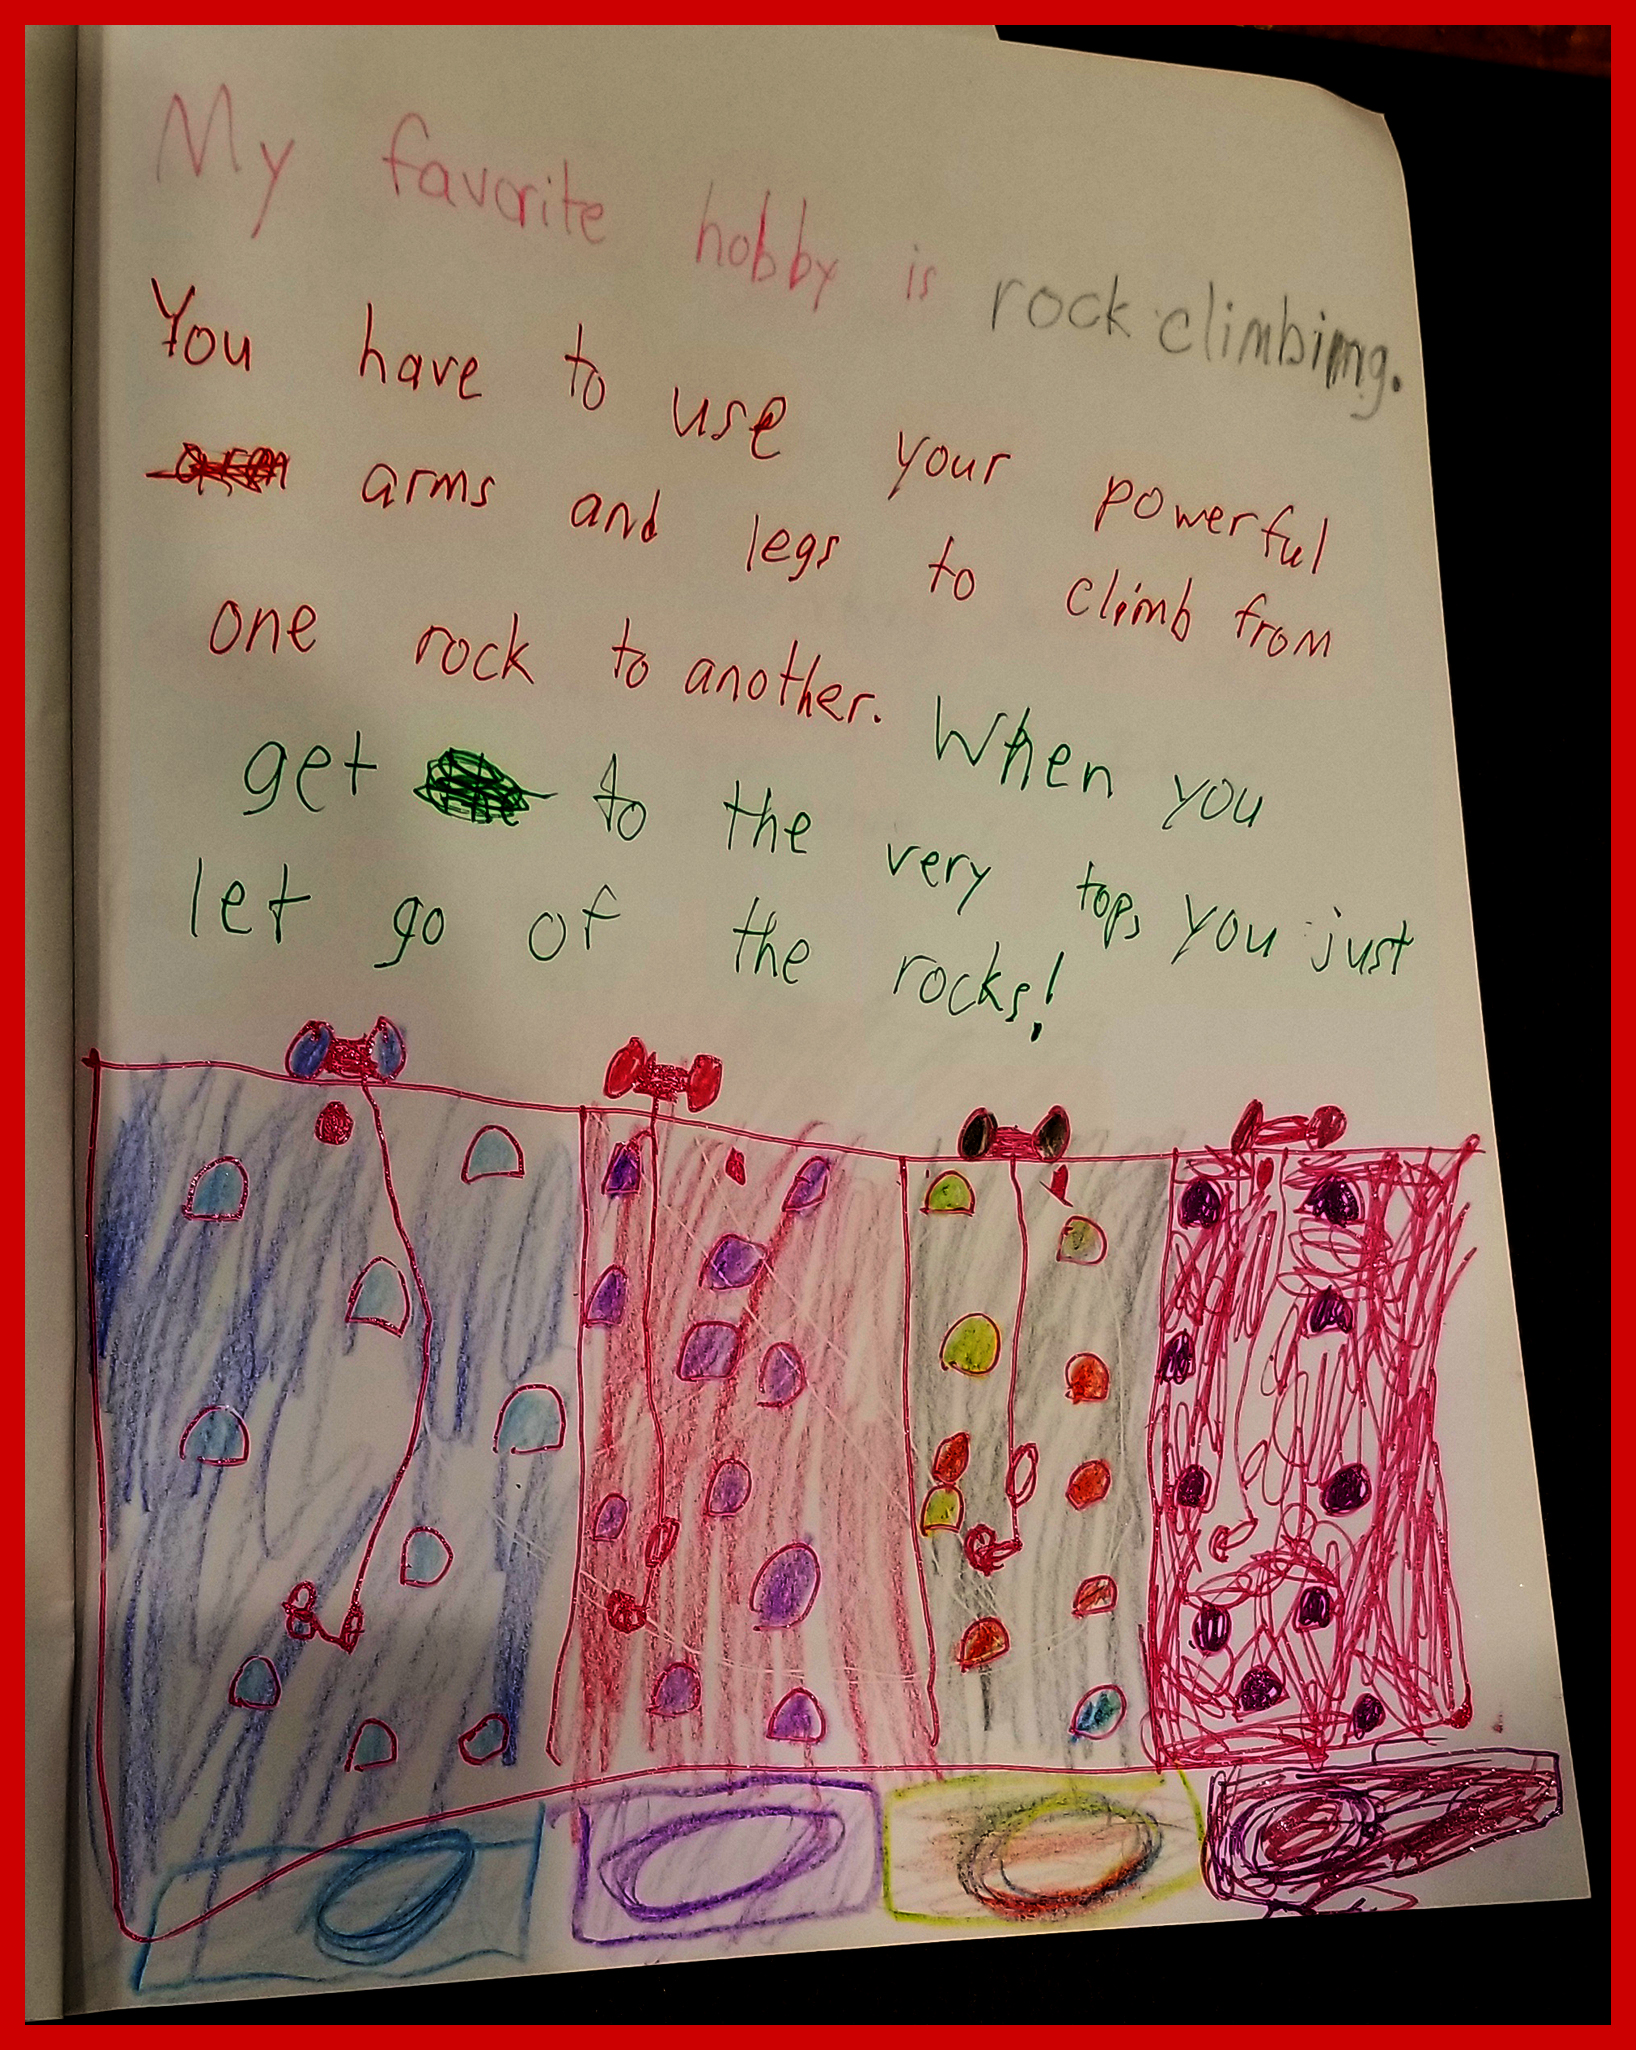 My favorite hobby is rock climbimg.
You have to use your powerful
arms and legs to climb from
one rock to another. When you
get to the very top, you just
let go of the rocks!